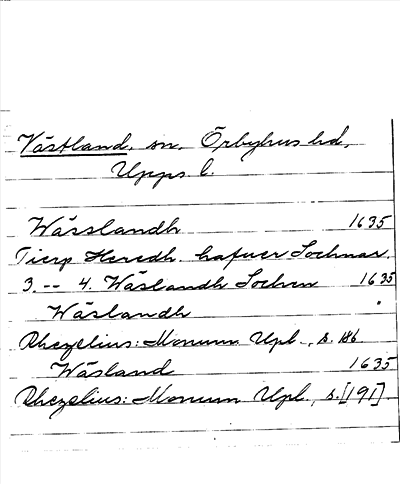 Västland, sn, Örbyhus hd,
Upps l.
Wässlandh 1635
Tierp Heredh. hafuer Sochnar.
3. -- 4. Wäslandh Sochen 1635
Wäslandh "
Rhezelius: Monum Upl., s. 186.
Wäsland 1635
Rhezelius: Monum Upl., s. [191].